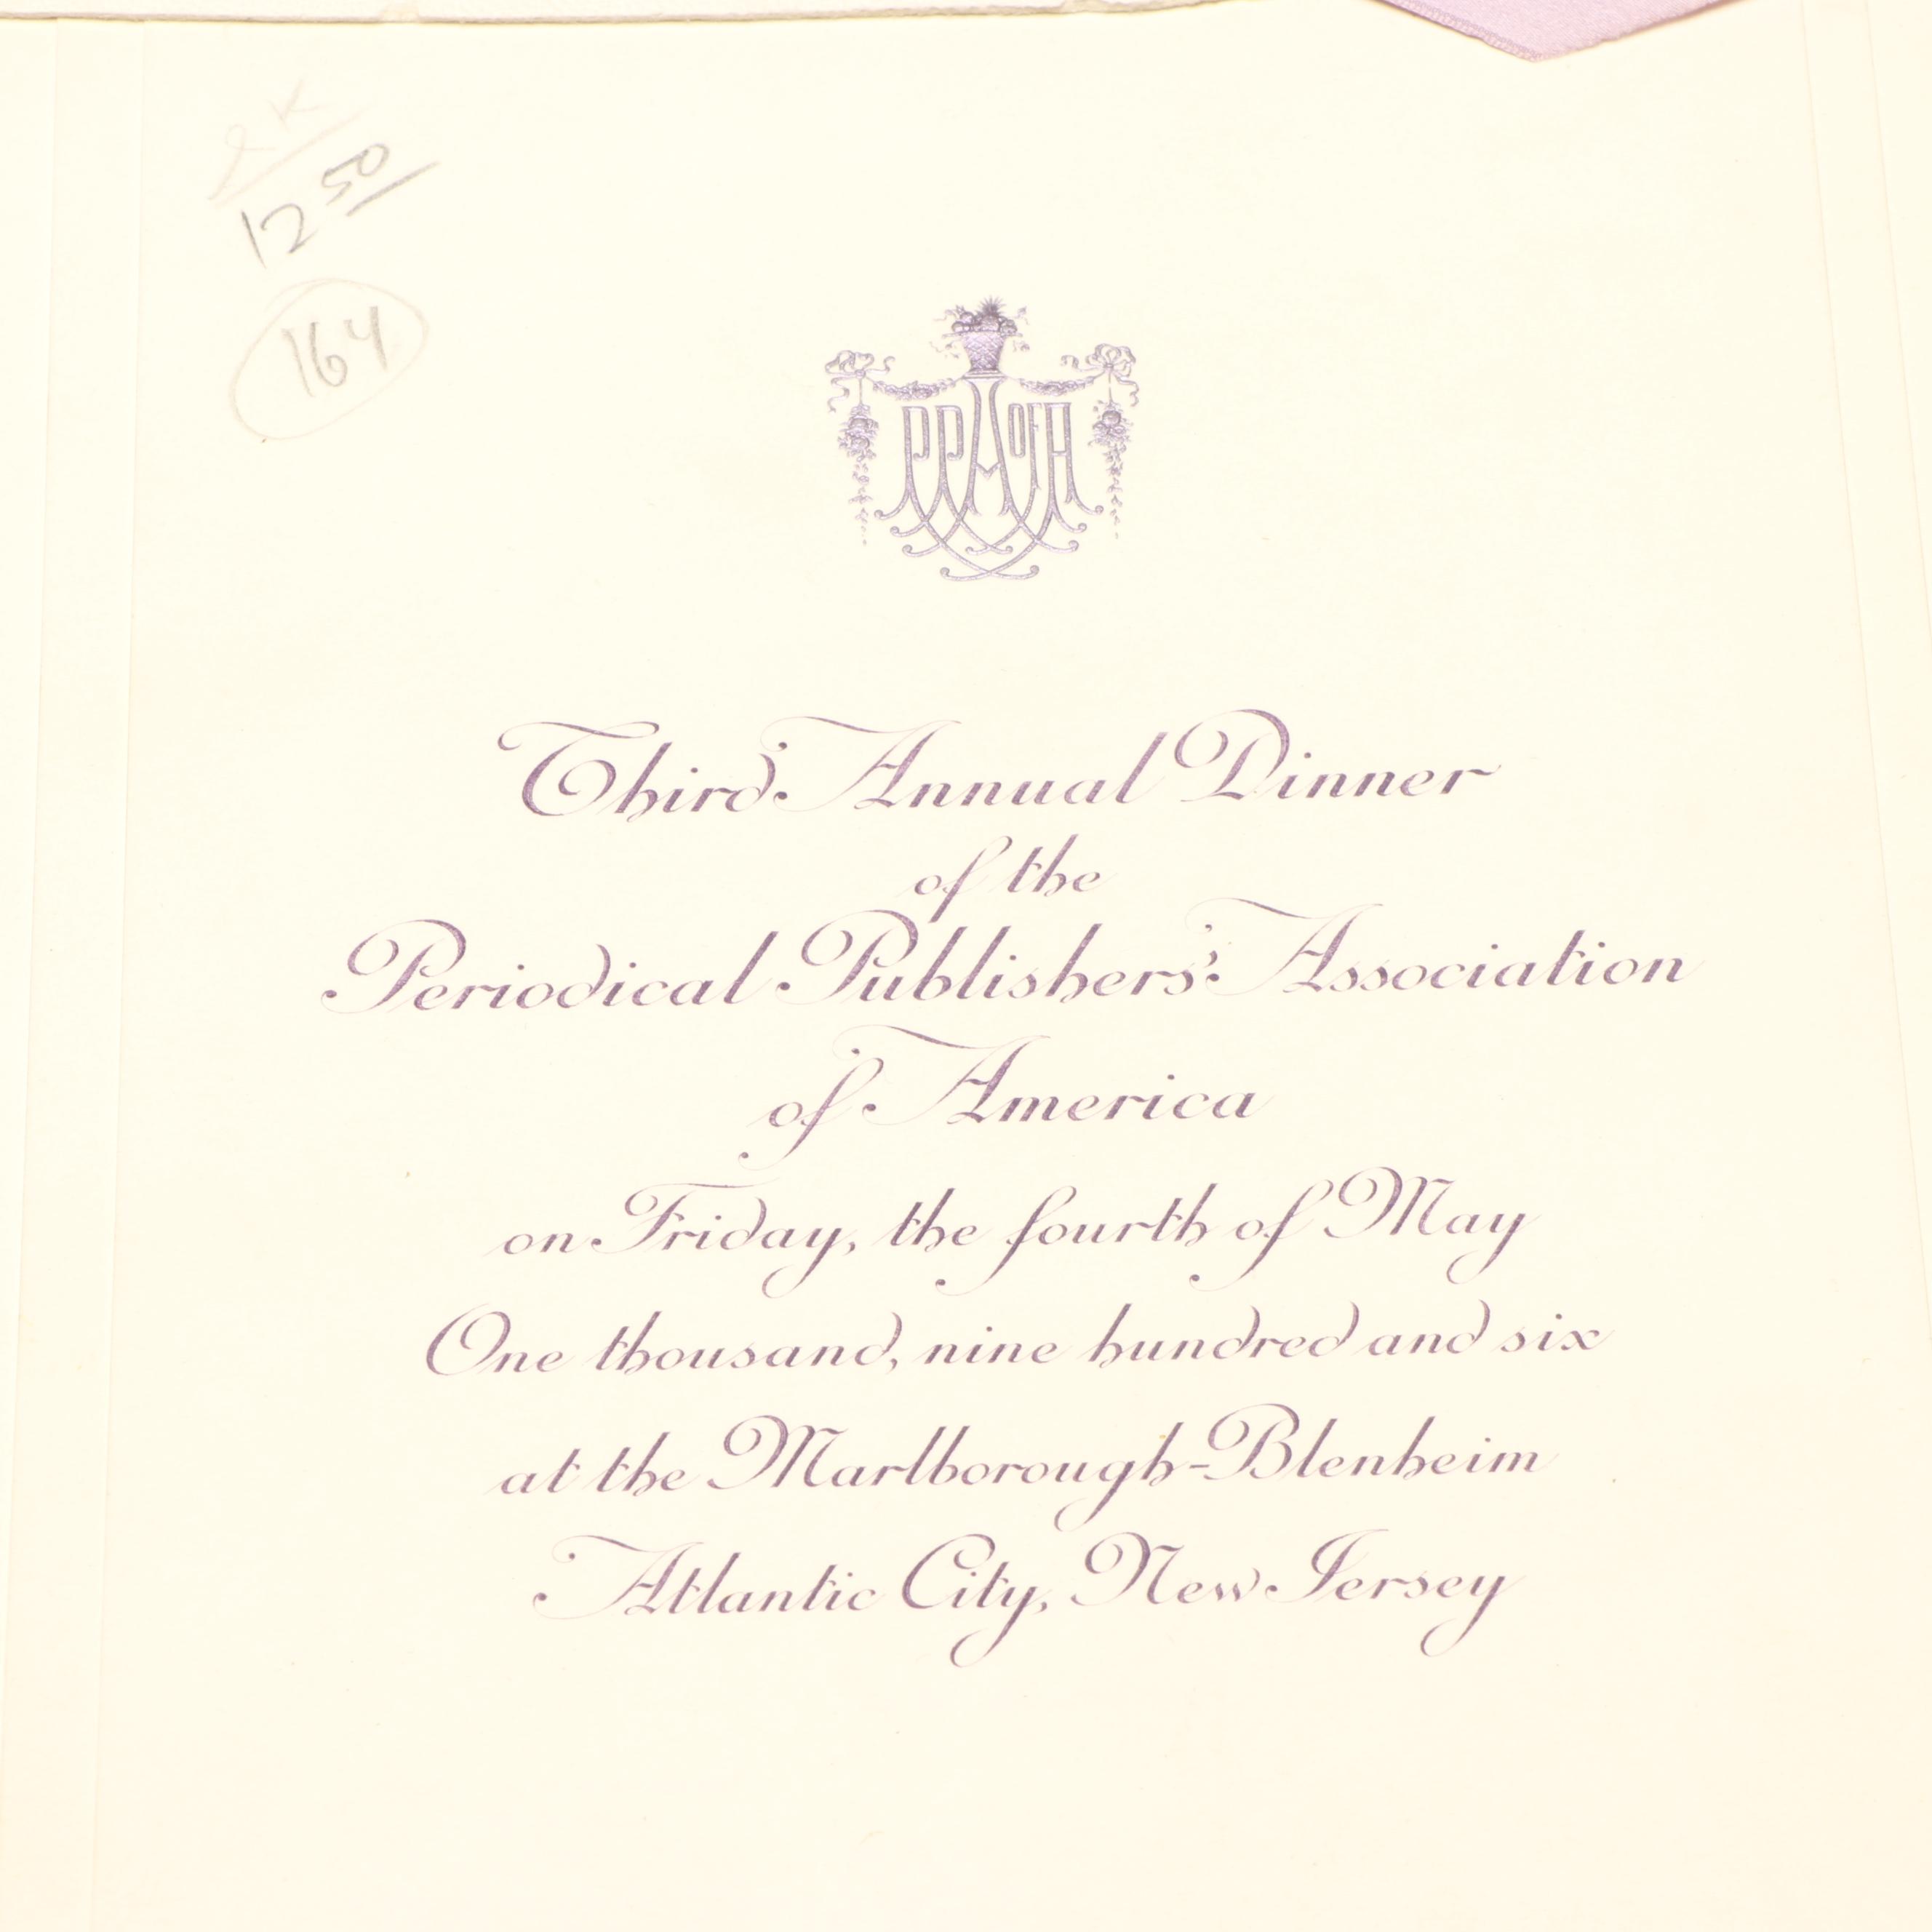 12 50
164
PPA OF A
Third Annual Dinner
of the
Periodical Publishers' Association
of America
on Friday, the fourth of May
One thousand, nine hundred and six
at the Marlborough-Blenheim
Atlantic City, New Jersey